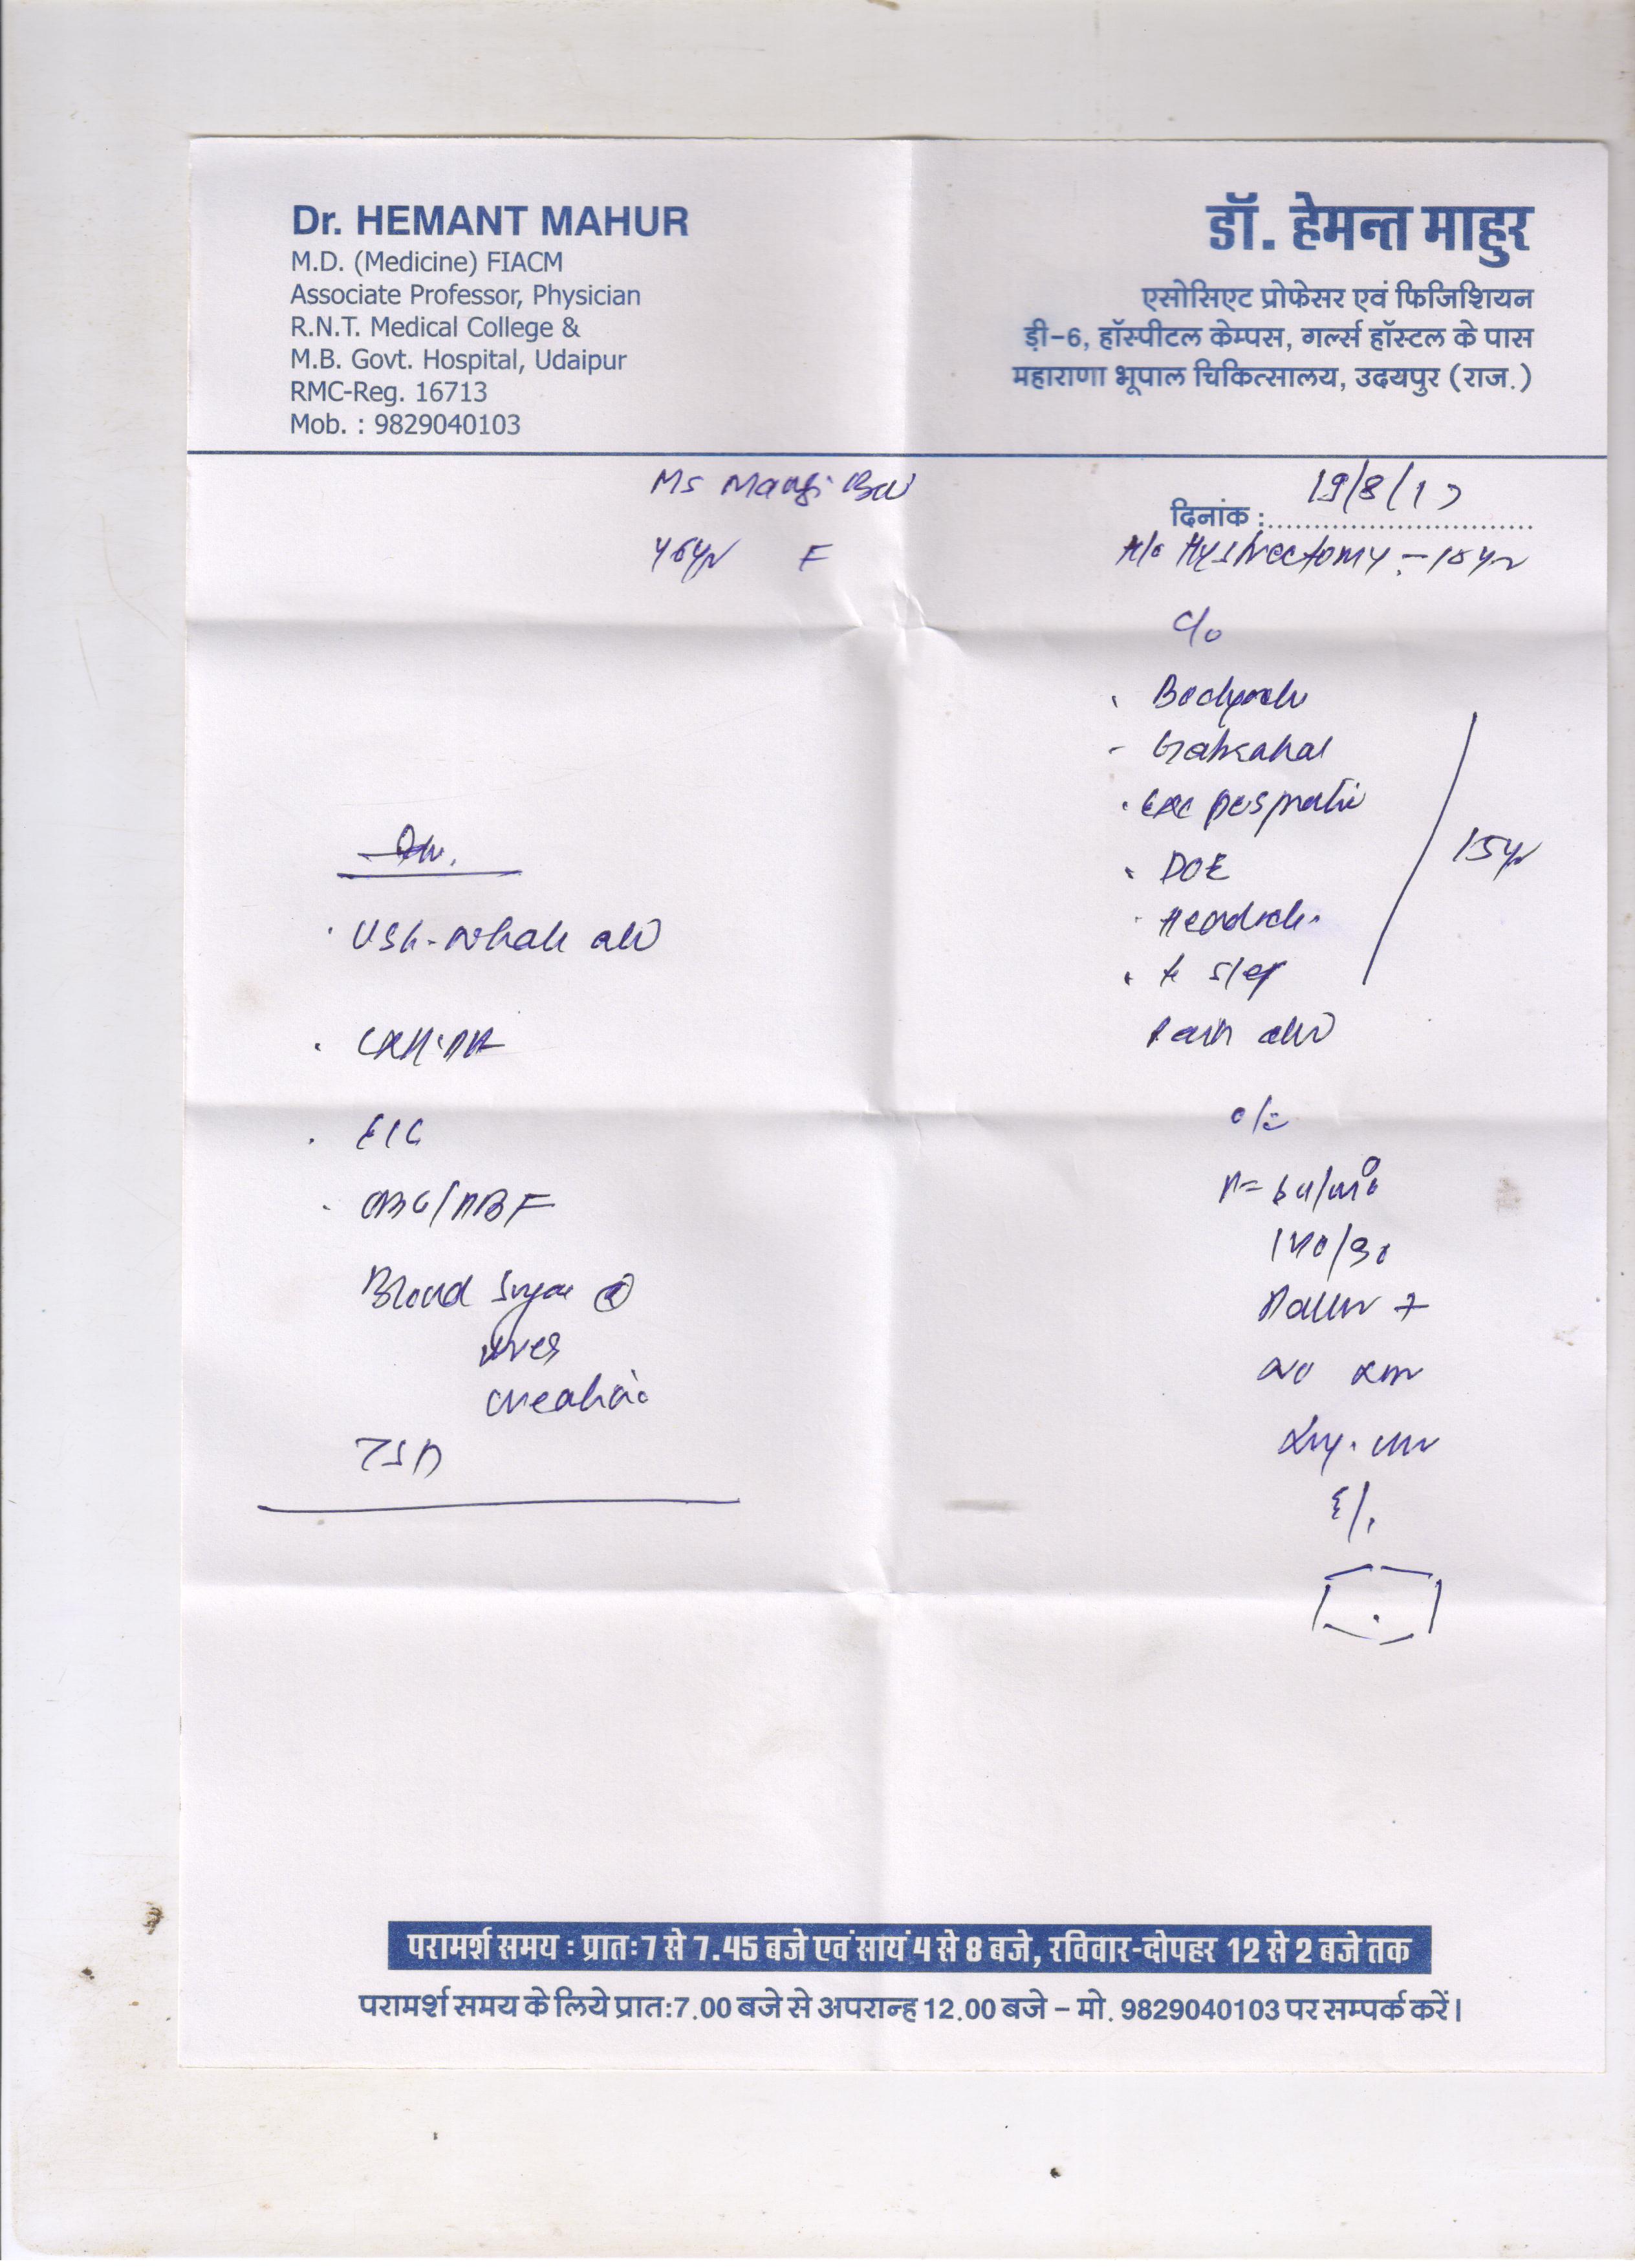 Dr. HEMANT MAHUR
M.D. (Medicine) FIACM
Associate Professor, Physician
R.N.T. Medical College &
M.B. Govt. Hospital, Udaipur
RMC-Reg. 16713
Mob. : 9829040103
डॉ. हेमन्त माहुर
एसोसिएट प्रोफेसर एवं फिजिशियन
ड़ी-6, हॉस्पीटल केम्पस, गर्ल्स हॉस्टल के पास
महाराणा भूपाल चिकित्सालय, उदयपुर (राज.)
Ms Mangi Bai
दिनांक : 19/8/17
F
H/o Hystrectomy - 10 yr
c/o
Bodyache
Gabrahat
DOE
Headache
15yr
Pain abd
USG - Whole abd
CXR-PA
ECG
CBC/PBF
Blood Sugar
Urea
Creatinine
TSH
o/e
Pallor +
परामर्श समय : प्रातः 7 से 7.45 बजे एवं सायं 4 से 8 बजे, रविवार-दोपहर 12 से 2 बजे तक
परामर्श समय के लिये प्रातः 7.00 बजे से अपरान्ह 12.00 बजे – मो. 9829040103 पर सम्पर्क करें।